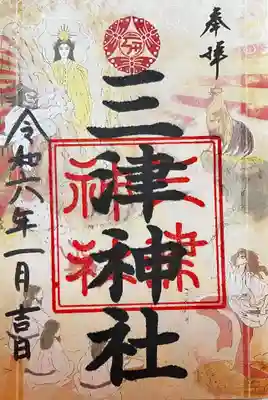 奉拝
三津神社
三津
神社
令和六年一月吉日